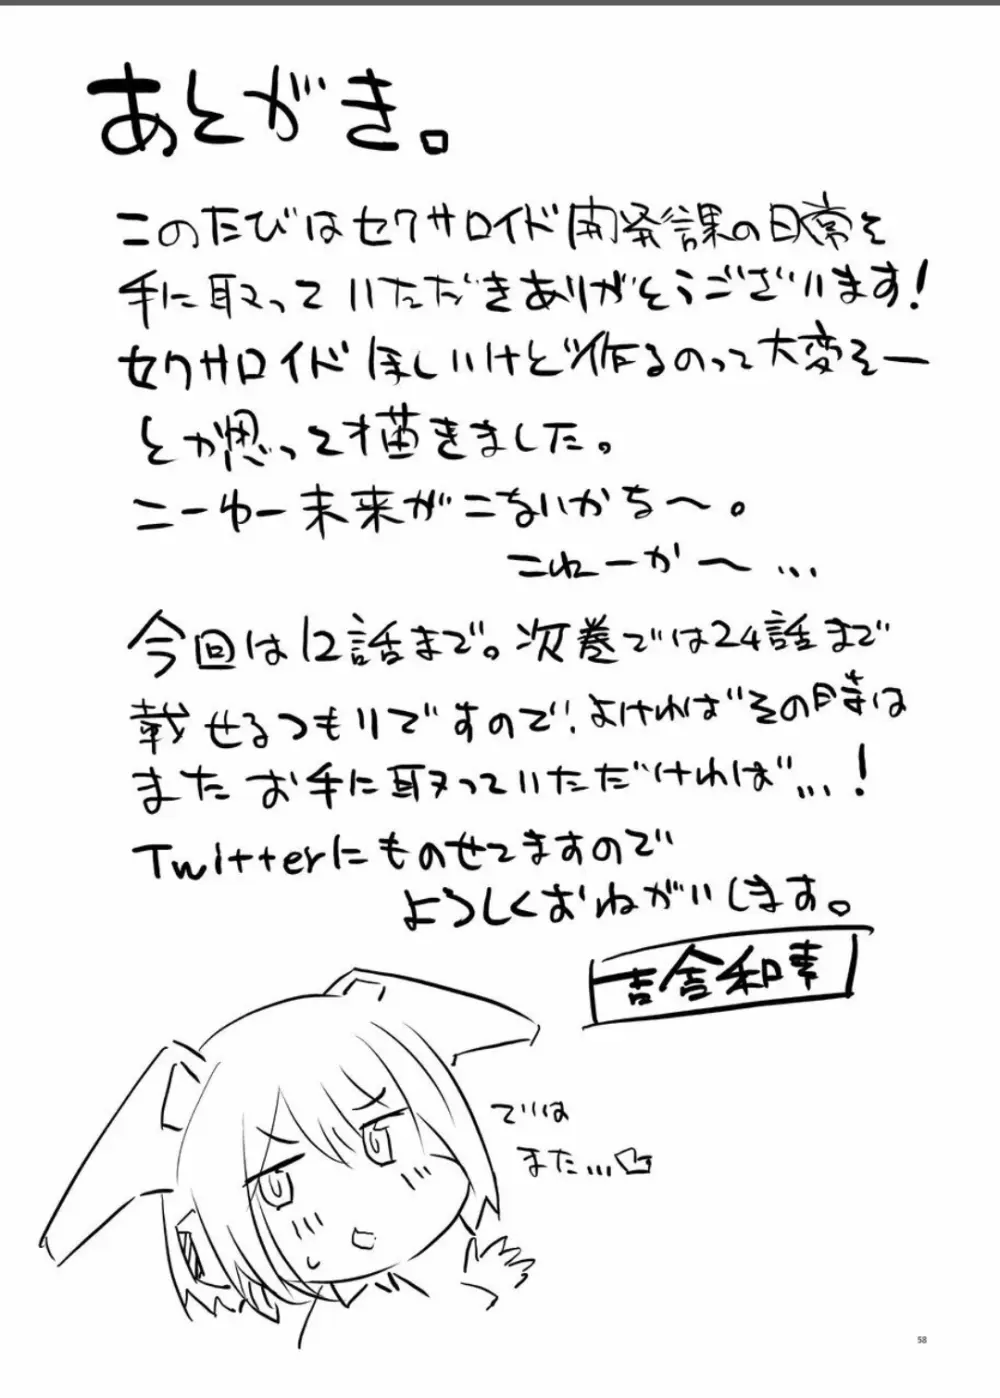 あとがき。
このたびはセクサロイド開発課の日常を
手に取っていただきありがとうございます!
セクサロイドほしいけど作るのって大変そー
とか思って描きました。
こーゆー未来がこないかな〜。
こねーか〜…
今回は12話まで。次巻では24話まで
載せるつもりですので!よければその時は
またお手に取っていただければ…!
Twitterにものせてますので
よろしくおねがいします。
吉舎和幸
では
また…
58